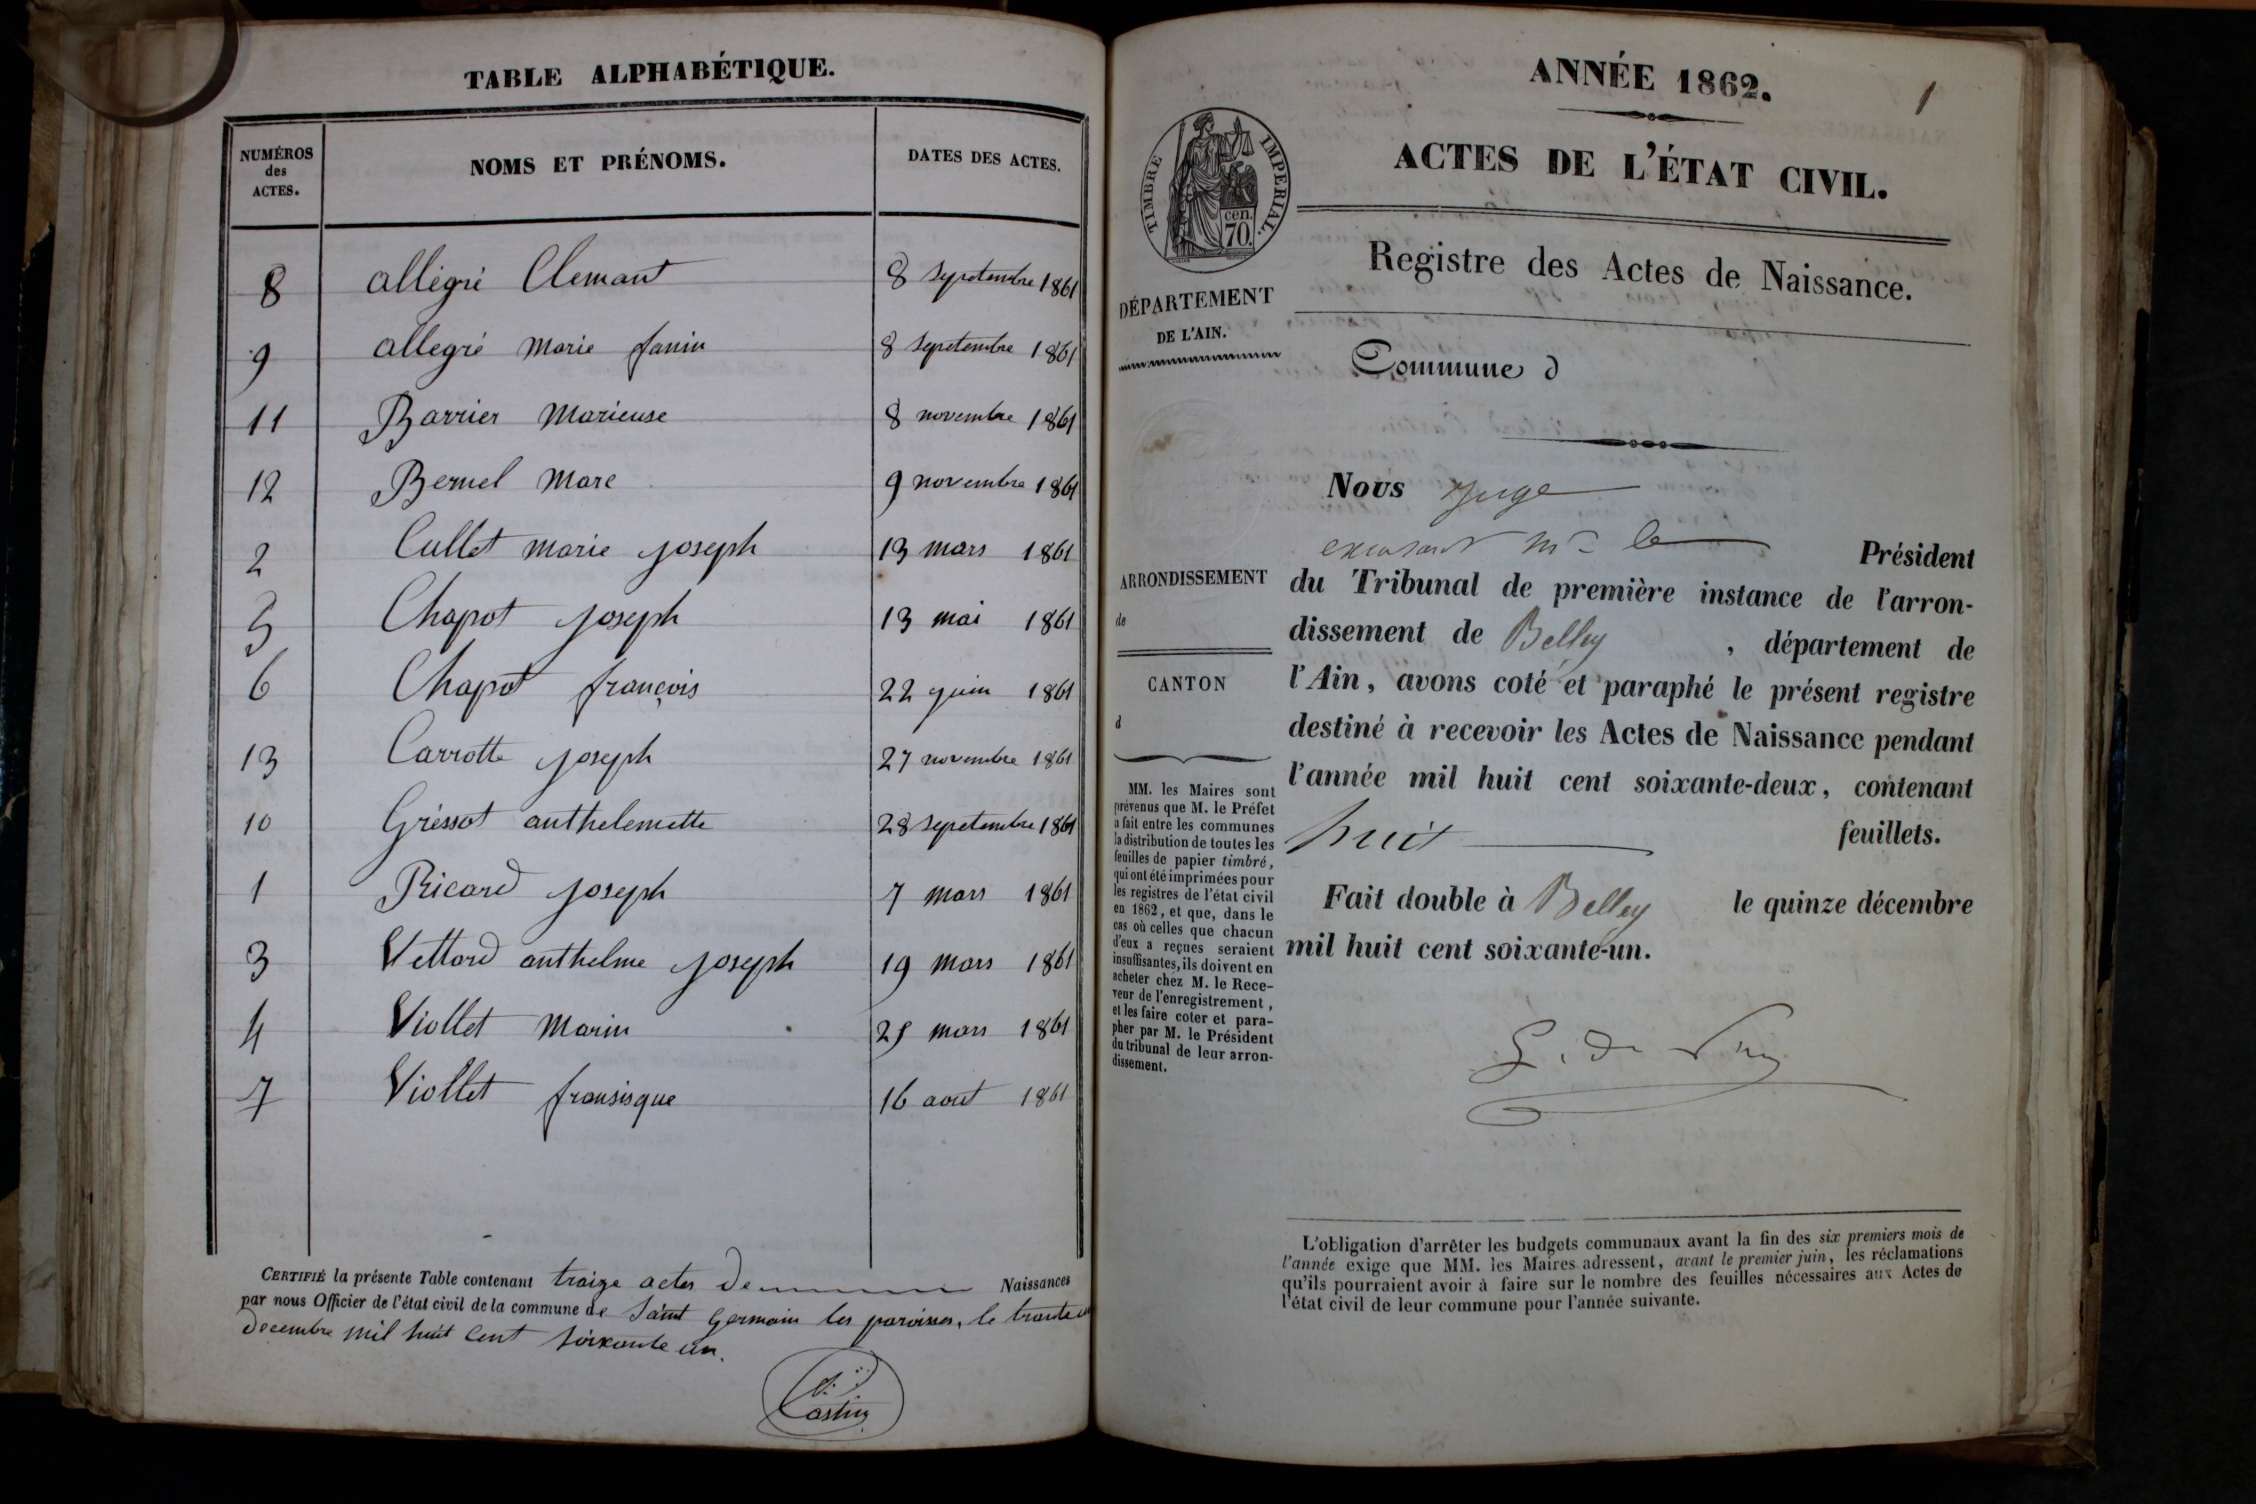 TABLE ALPHABÉTIQUE.
NUMÉROS des ACTES. NOMS ET PRÉNOMS. DATES DES ACTES.
8 allégri Clemant 8 septembre 1861
9 allegri marie fanin 8 septembre 1861
11 Barrier Marieuse 8 novembre 1861
12 Bernel Marc 9 novembre 1861
2 Cullet marie joseph 13 mars 1861
5 Chapot joseph 13 mai 1861
6 Chapot françois 22 juin 1861
13 Carrotte joseph 27 novembre 1861
10 Gréssot anthelemette 28 septembre 1861
1 Ricard joseph 7 mars 1861
3 Vettard anthelme joseph 19 mars 1861
4 Viollet Marin 25 mars 1861
7 Viollet fransisque 16 aout 1861
CERTIFIÉ la présente Table contenant traize actes De Naissances
par nous Officier de l'état civil de la commune de Saint germain les paroisses, le trante un
Decembre mil huit Cent soixante un.
Castin
ANNÉE 1862.
1
ACTES DE L'ÉTAT CIVIL.
TIMBRE IMPERIAL.
cen.
70.
Registre des Actes de Naissance.
DÉPARTEMENT
DE L'AIN.
Commune d
Nous Juge
excusant Mr le Président
du Tribunal de première instance de l'arron-
dissement de Belley , département de
l'Ain, avons coté et paraphé le présent registre
destiné à recevoir les Actes de Naissance pendant
l'année mil huit cent soixante-deux, contenant
huit feuillets.
Fait double à Belley le quinze décembre
mil huit cent soixante-un.
ARRONDISSEMENT
de
CANTON
d
MM. les Maires sont
prévenus que M. le Préfet
a fait entre les communes
la distribution de toutes les
feuilles de papier timbré,
qui ont été imprimées pour
les registres de l'état civil
en 1862, et que, dans le
cas où celles que chacun
d'eux a reçues seraient
insuffisantes, ils doivent en
acheter chez M. le Rece-
veur de l'enregistrement,
et les faire coter et para-
pher par M. le Président
du tribunal de leur arron-
dissement.
L'obligation d'arrêter les budgets communaux avant la fin des six premiers mois de
l'année exige que MM. les Maires adressent, avant le premier juin, les réclamations
qu'ils pourraient avoir à faire sur le nombre des feuilles nécessaires aux Actes de
l'état civil de leur commune pour l'année suivante.